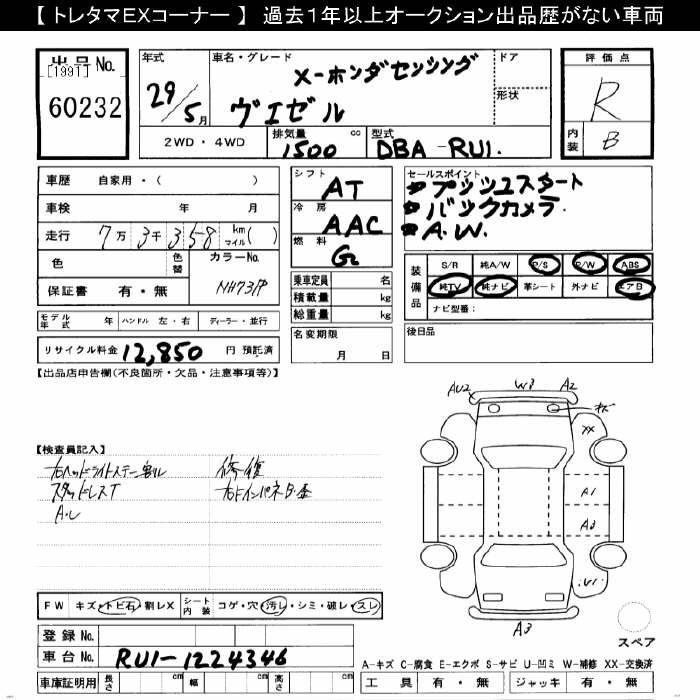 【 トレタマEXコーナー 】 過去1年以上オークション出品歴がない車両
出品No.
[1991]
60232
年式
29/5月
車名・グレード
X-ホンダセンシング
ヴェゼル
ドア
形状
評価点
R
内装
B
2WD ・ 4WD
排気量
1500 cc
型式
DBA-RU1.
車歴 自家用・( )
車検 年 月
走行 7万 3千 358 km マイル( )
色
色替
カラーNo.
NH731P
保証書 有・無
シフト
AT
冷房
AAC
燃料
G
セールスポイント
プッシュスタート
バックカメラ.
A.W.
装備品
S/R 純A/W P/S P/W ABS
純TV 純ナビ 革シート 外ナビ エアB
ナビ型番:
乗車定員 名
積載量 kg
総重量 kg
モデル年式 年 ハンドル 左・右 ディーラー・並行
名変期限
月 日
後日品
リサイクル料金 12,850 円 預託済
【出品店申告欄(不良箇所・欠品・注意事項等)】
【検査員記入】
右ヘッドライトステー割ル
スタッドレスT
修復
右ドインパネB・歪
AU2
W3
A2
キズ
XX
A1
A3
U1
A3
スペア
FW キズ・トビ石・割レX
シート内装 コゲ・穴・汚レ・シミ・破レ・スレ
登録No.
車台No. RU1-1224346
A-キズ C-腐食 E-エクボ S-サビ U-凹ミ W-補修 XX-交換済
車庫証明用 長さ cm 幅 cm 高さ cm
工具 有・無 ジャッキ 有・無